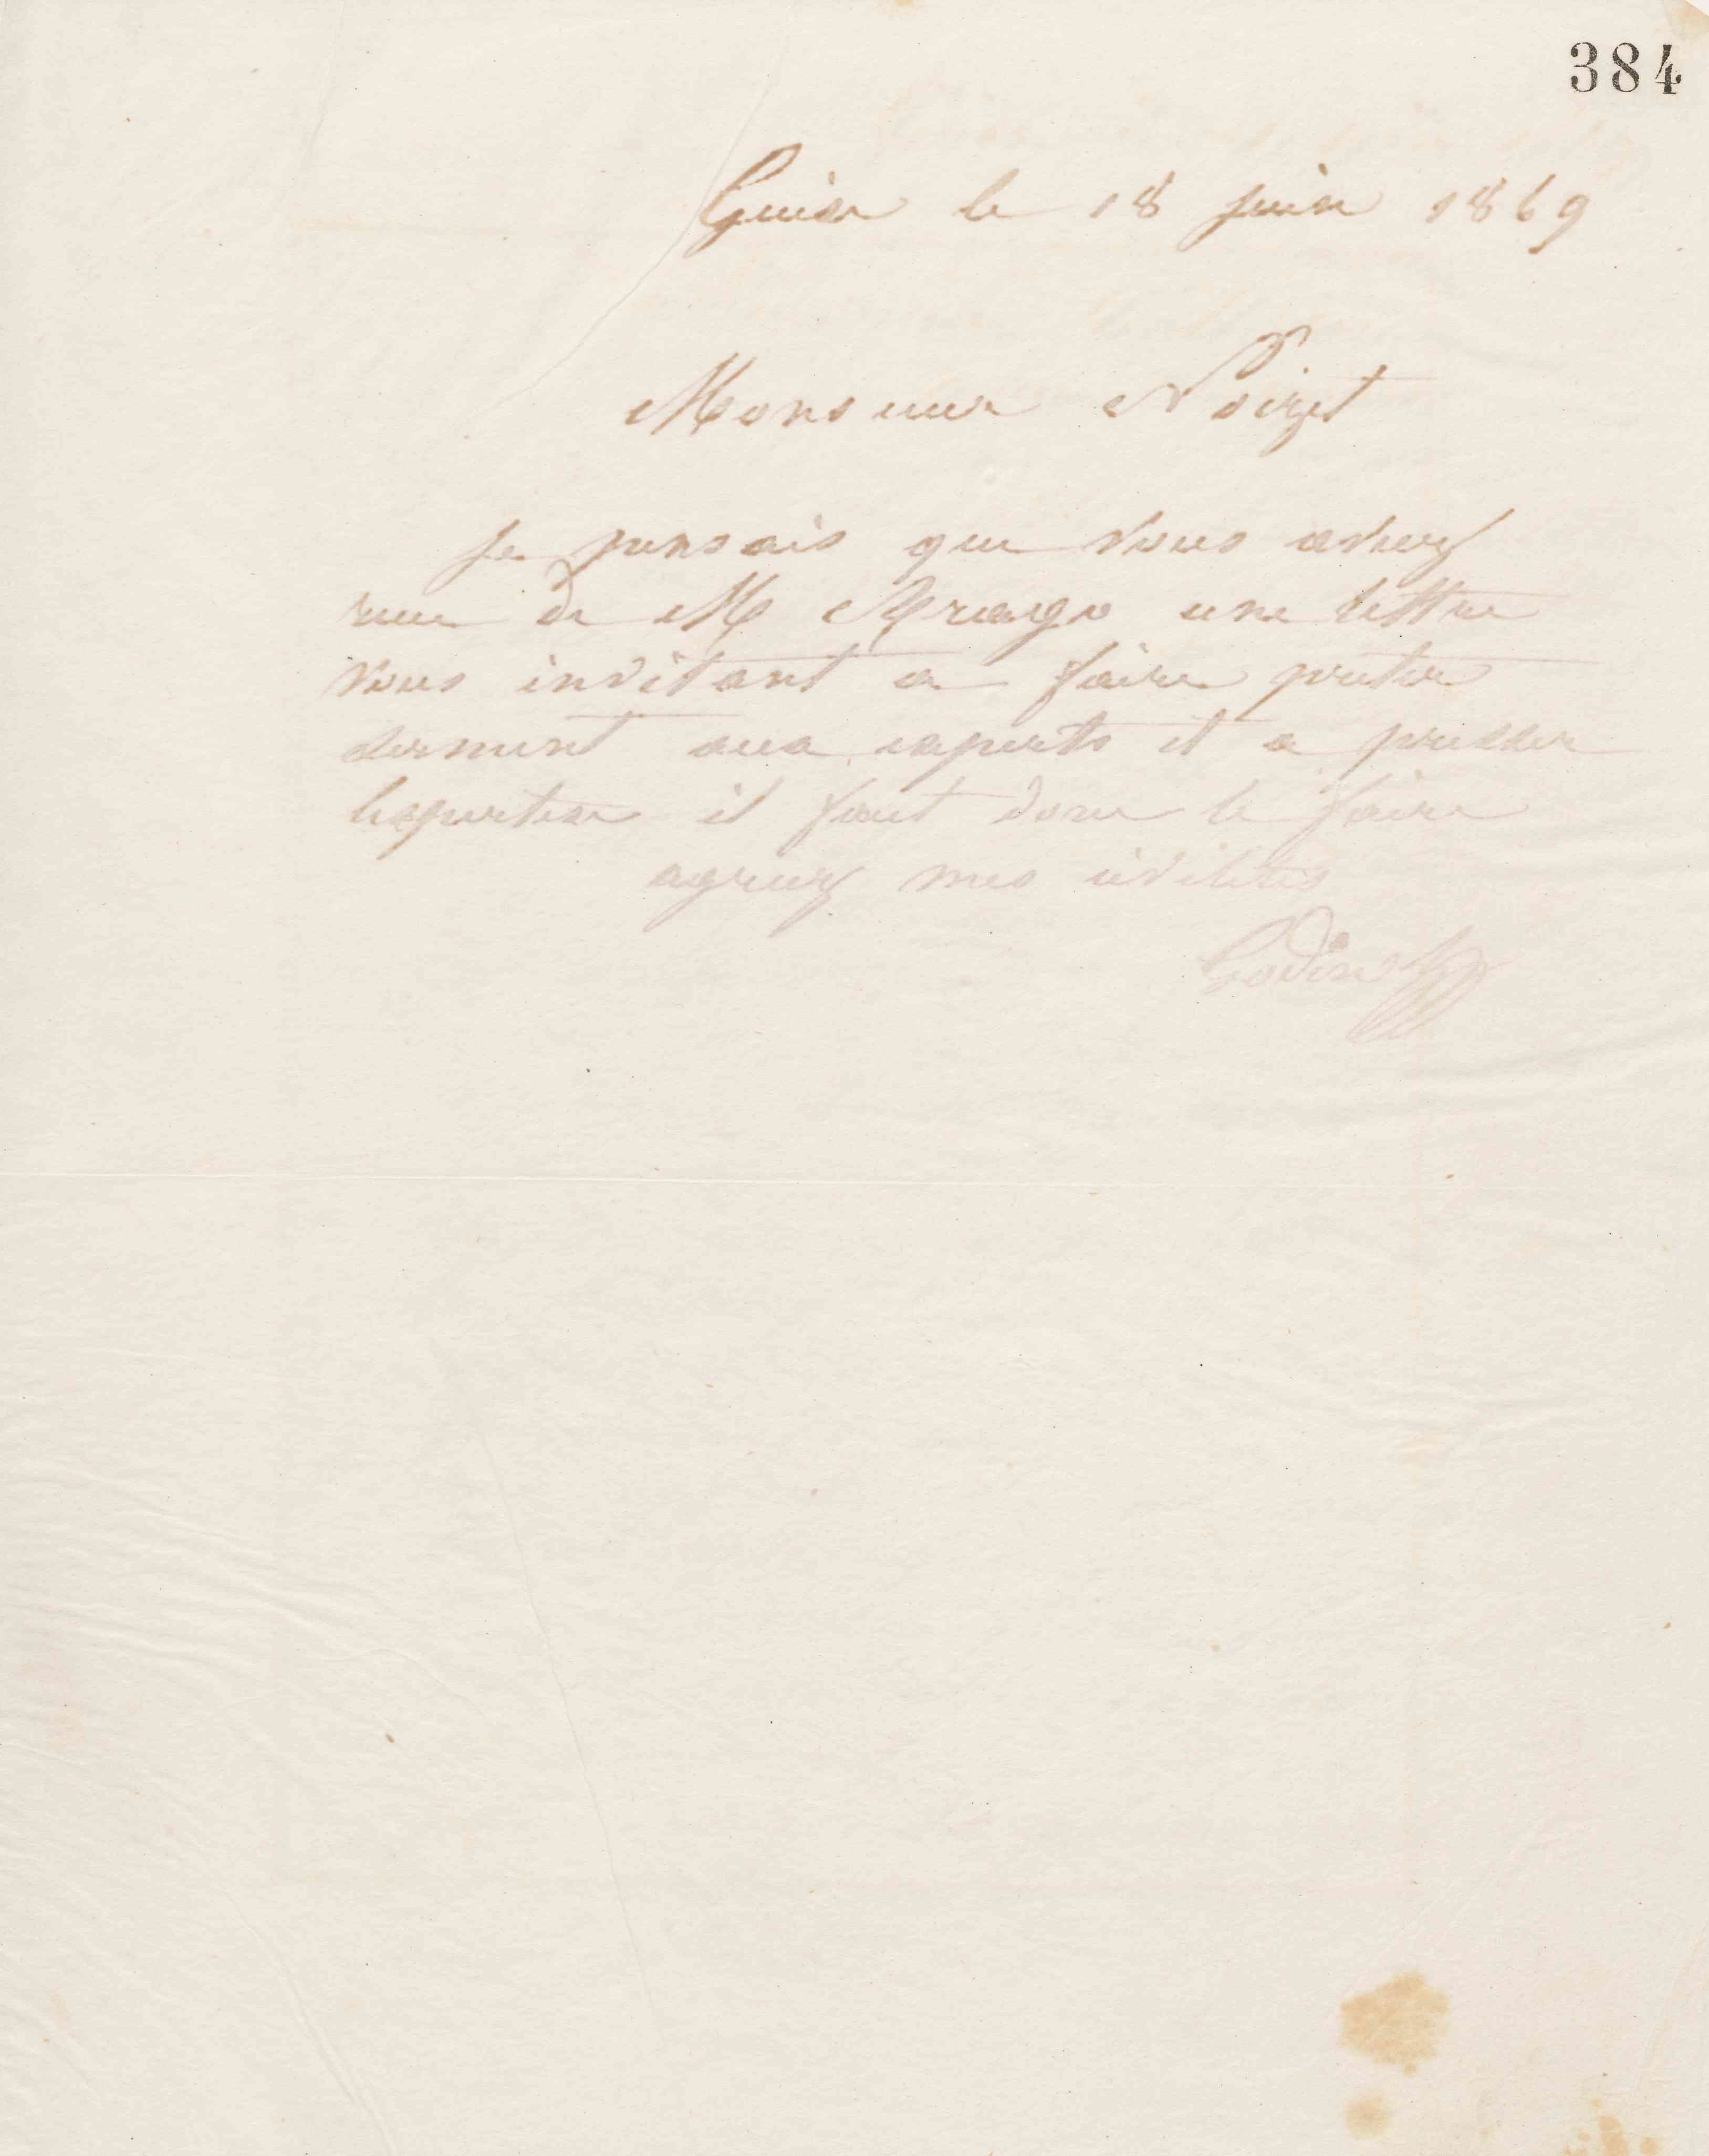 384
Guise le 18 juin 1869
Monsieur Noizet
Je pensais que vous aviez
recu de M Arago une lettre
vous invitant a faire preter
serment aux experts et a presser
lexpertise il faut donc le faire
agreez mes civilites
Godin